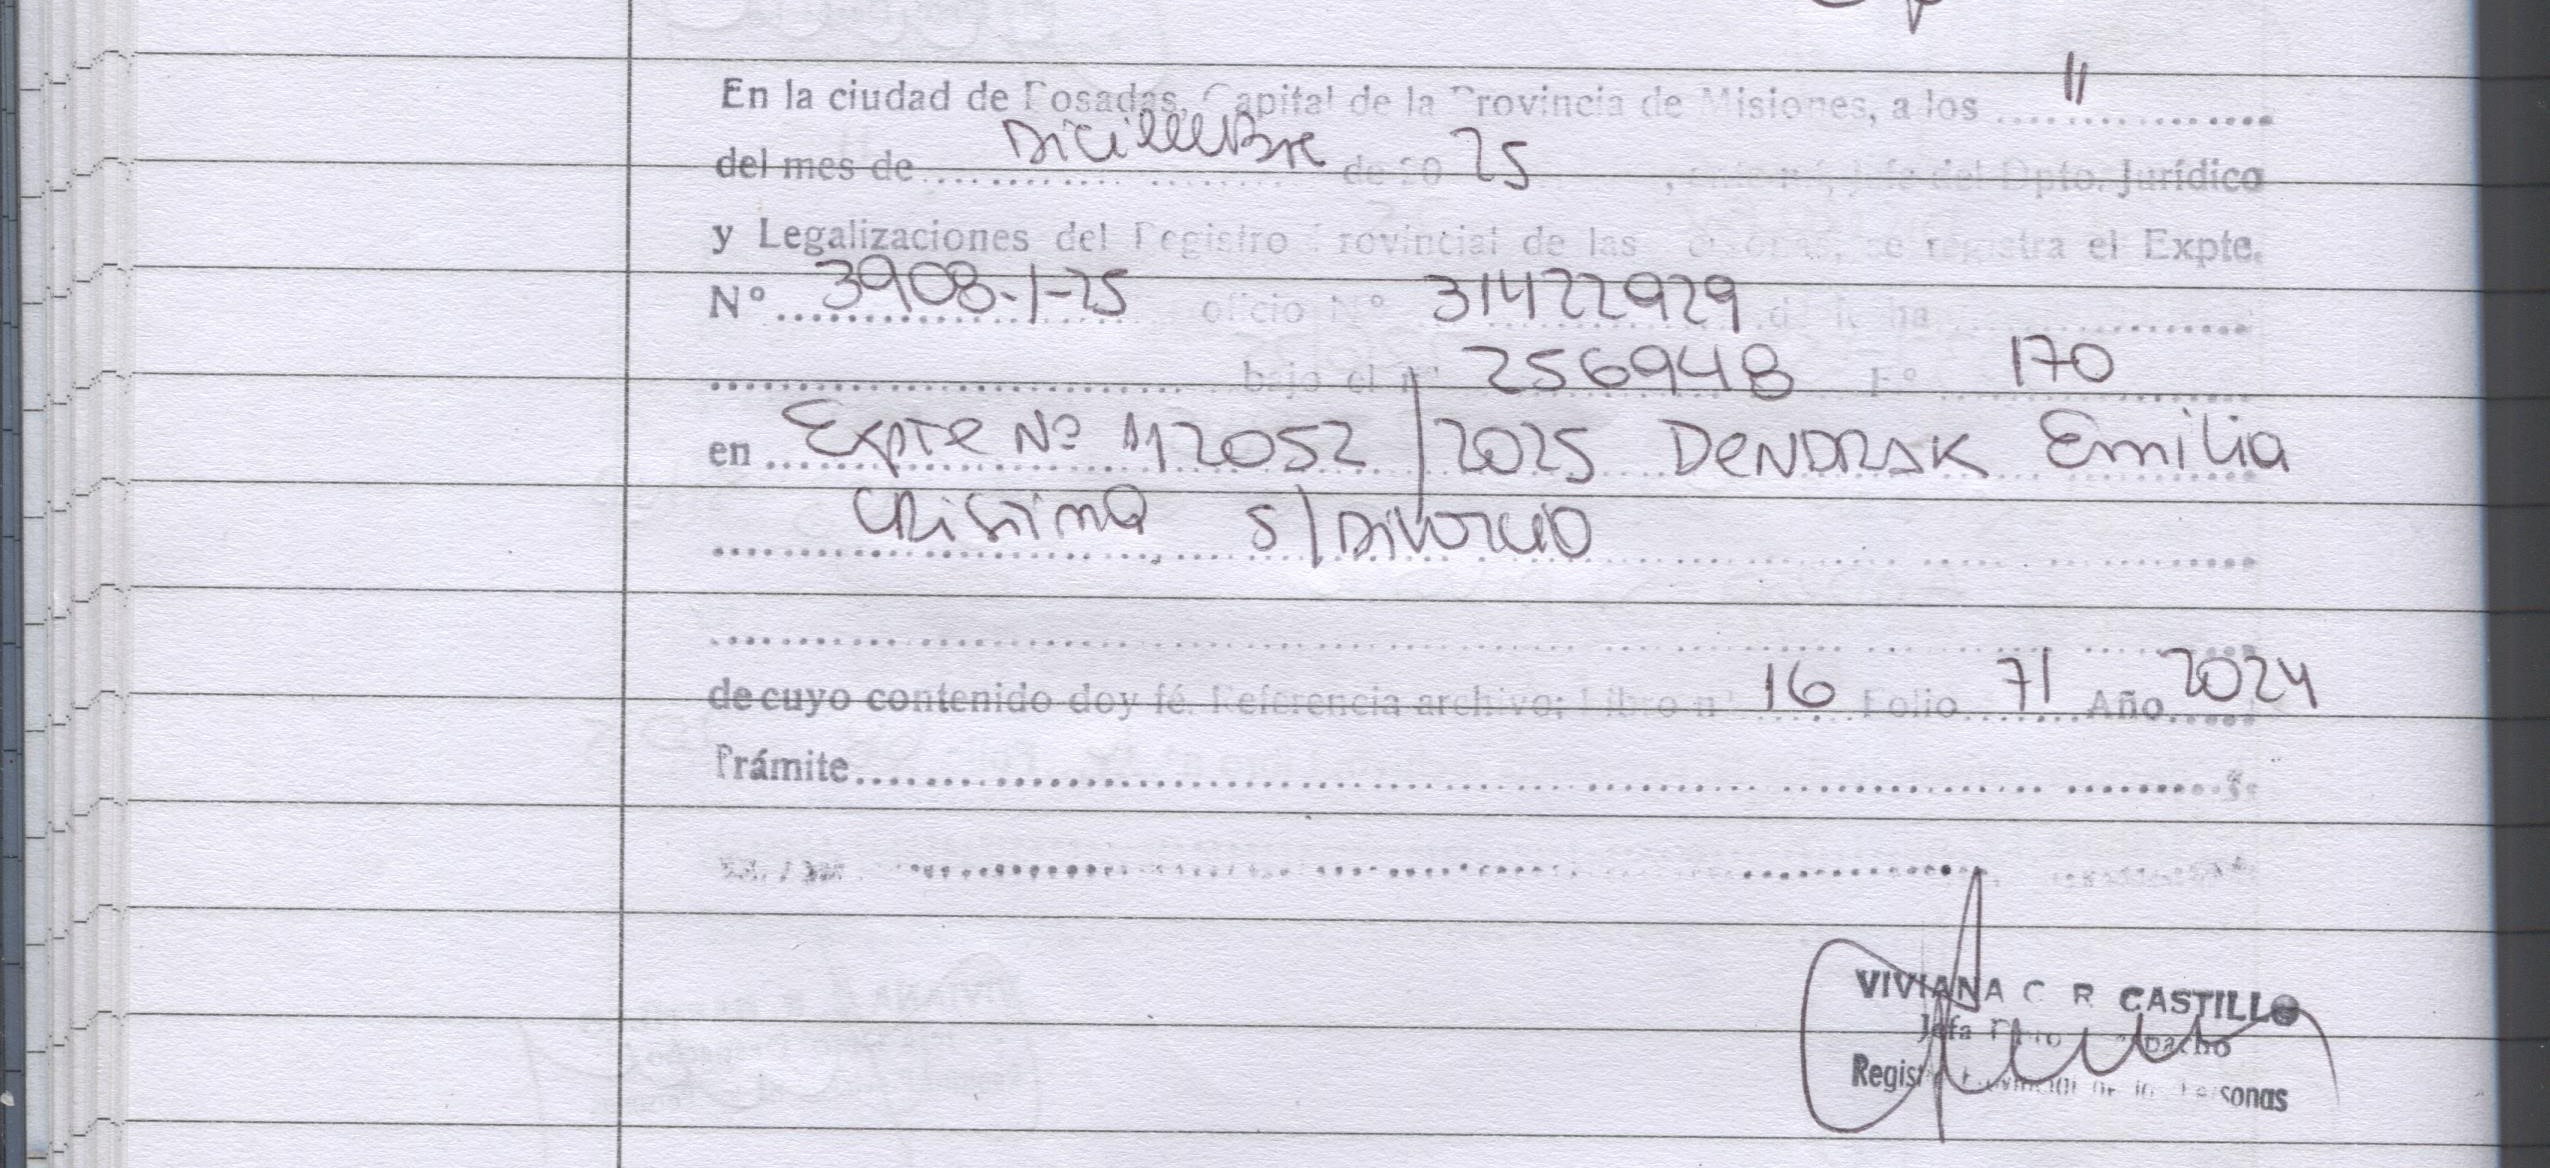 En la ciudad de Posadas, Capital de la Provincia de Misiones, a los 11
del mes de Diciembre de 20 25, ante mí, Jefe del Dpto. Jurídico
y Legalizaciones del Registro Provincial de las Personas, se registra el Expte.
Nº 3908-1-25 oficio Nº 31422929 de fecha
bajo el nº 256948 Fº 170
en Expte Nº 112052/2025 DENDRAK Emilia
Cristina s/Divorcio
de cuyo contenido doy fé. Referencia archivo: Libro nº 16 Folio 71 Año 2024
Trámite
VIVIANA C. R. CASTILLO
Jefa Dpto Despacho
Registro Provincial de las Personas